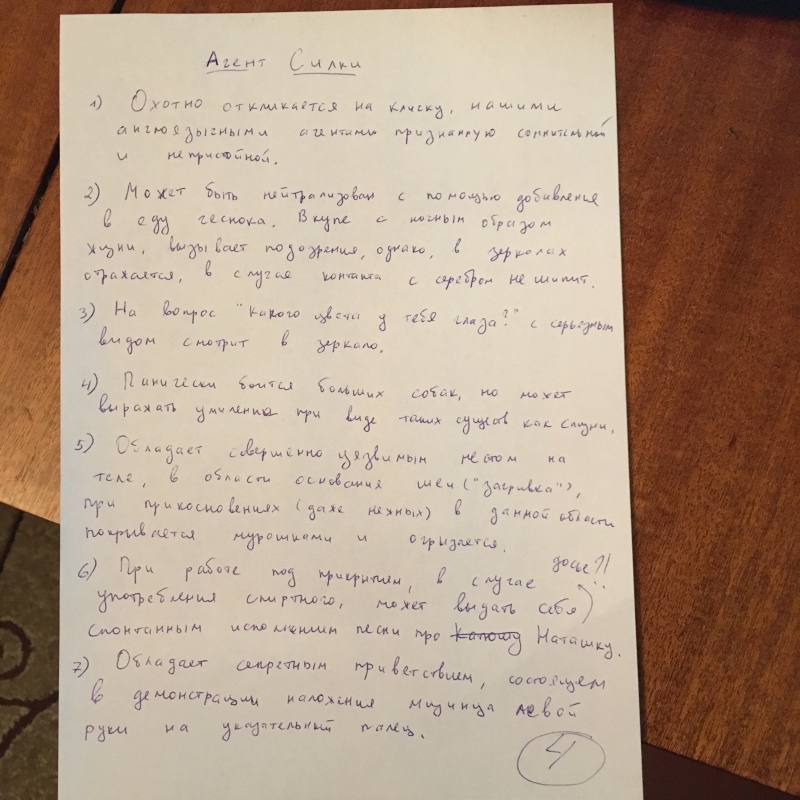 Агент Силки
1) Охотно откликается на кличку, нашими
англоязычными агентами признанную сомнительной
и непристойной.
2) Может быть нейтрализован с помощью добавления
в еду чеснока. Вкупе с ночным образом
жизни, вызывает подозрения, однако, в зеркалах
отражается, в случае контакта с серебром не шипит.
3) На вопрос "Какого цвета у тебя глаза?" с серьезным
видом смотрит в зеркало.
4) Панически боится больших собак, но может
выражать умиление при виде таких существ как слизни.
5) Обладает совершенно уязвимым местом на
теле, в области основания шеи ("загривка"),
при прикосновениях (даже нежных) в данной области
покрывается мурашками и огрызается.
6) При работе под прикрытием, в случае досье?!
употребления спиртного, может выдать себя
спонтанным исполнением песни про Наташку.
7) Обладает секретным приветствием, состоящем
в демонстрации наложения мизинца левой
руки на указательный палец.
4